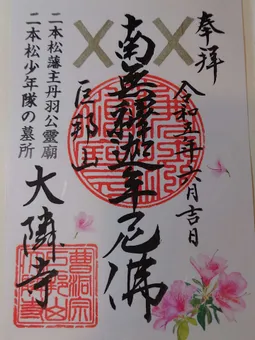 奉拝
令和五年六月吉日
南無釋迦牟尼佛
巨邦山
二本松藩主丹羽公霊廟
二本松少年隊の墓所
大隣寺
曹洞宗